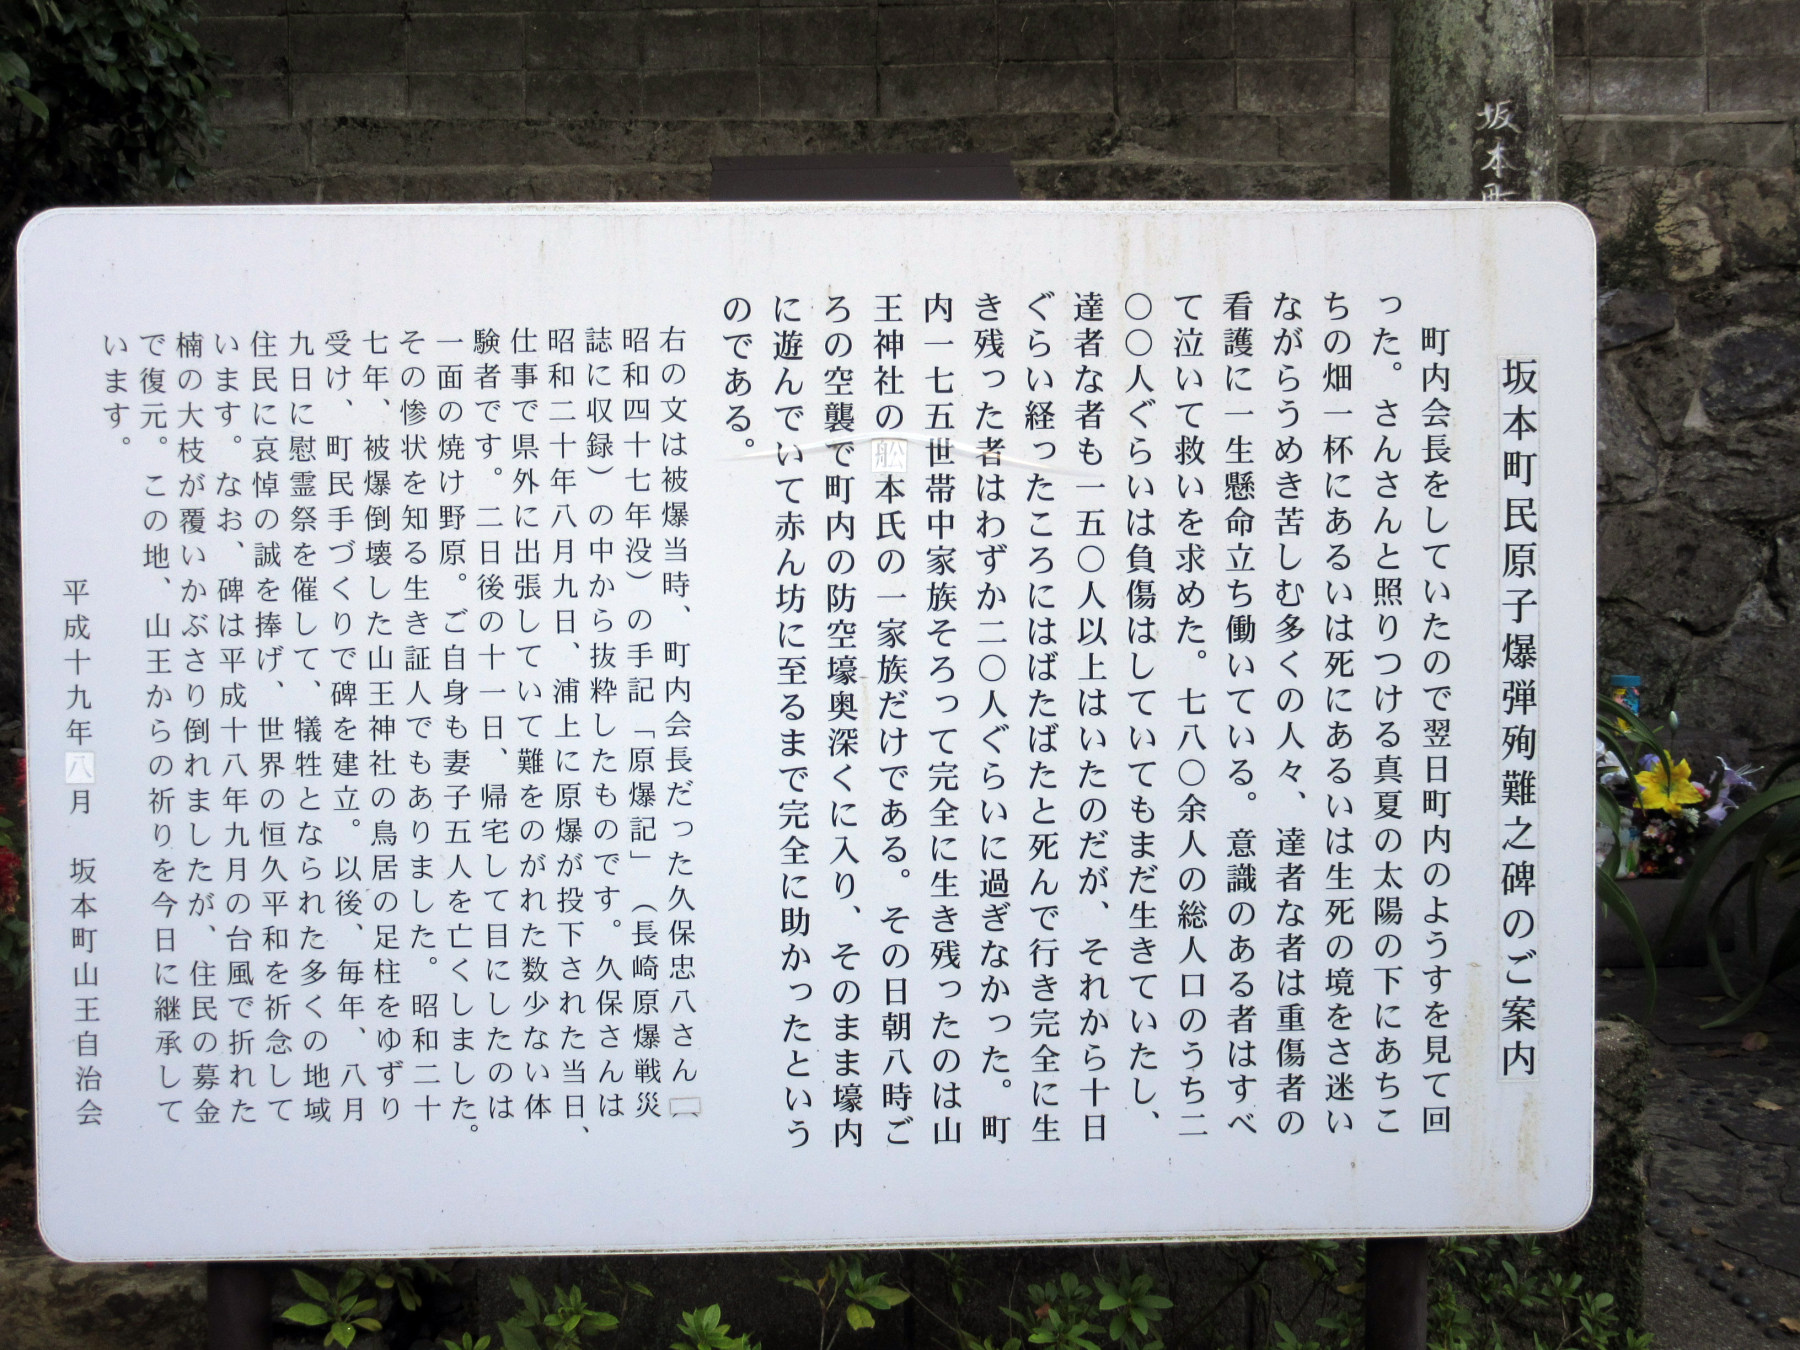 坂本町民原子爆弾殉難之碑のご案内
町内会長をしていたので翌日町内のようすを見て回
った。さんさんと照りつける真夏の太陽の下にあちこ
ちの畑一杯にあるいは死にあるいは生死の境をさ迷い
ながらうめき苦しむ多くの人々、達者な者は重傷者の
看護に一生懸命立ち働いている。意識のある者はすべ
て泣いて救いを求めた。七八〇余人の総人口のうち二
〇〇人ぐらいは負傷はしていてもまだ生きていたし、
達者な者も一五〇人以上はいたのだが、それから十日
ぐらい経ったころにはばたばたと死んで行き完全に生
き残った者はわずか二〇人ぐらいに過ぎなかった。町
内一七五世帯中家族そろって完全に生き残ったのは山
王神社の舩本氏の一家族だけである。その日朝八時ご
ろの空襲で町内の防空壕奥深くに入り、そのまま壕内
に遊んでいて赤ん坊に至るまで完全に助かったという
のである。
右の文は被爆当時、町内会長だった久保忠八さん（
昭和四十七年没）の手記「原爆記」（長崎原爆戦災
誌に収録）の中から抜粋したものです。久保さんは
昭和二十年八月九日、浦上に原爆が投下された当日、
仕事で県外に出張していて難をのがれた数少ない体
験者です。二日後の十一日、帰宅して目にしたのは
一面の焼け野原。ご自身も妻子五人を亡くしました。
その惨状を知る生き証人でもありました。昭和二十
七年、被爆倒壊した山王神社の鳥居の足柱をゆずり
受け、町民手づくりで碑を建立。以後、毎年、八月
九日に慰霊祭を催して、犠牲となられた多くの地域
住民に哀悼の誠を捧げ、世界の恒久平和を祈念して
います。なお、碑は平成十八年九月の台風で折れた
楠の大枝が覆いかぶさり倒れましたが、住民の募金
で復元。この地、山王からの祈りを今日に継承して
います。
平成十九年八月　坂本町山王自治会
坂本町